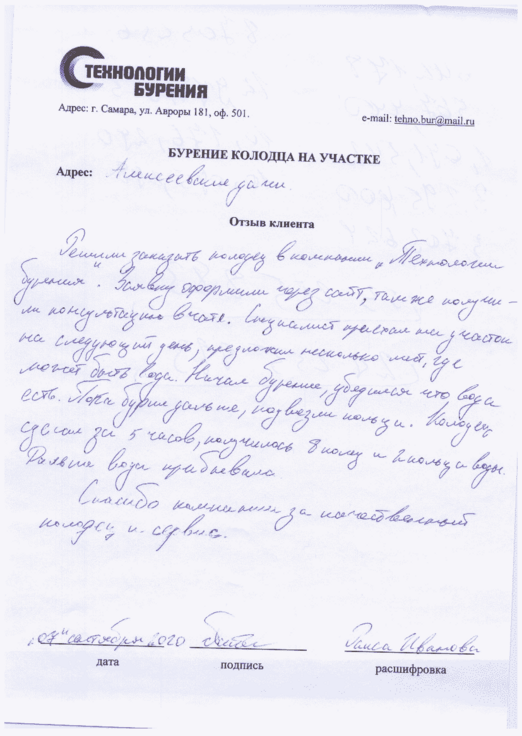 ТЕХНОЛОГИИ
БУРЕНИЯ
Адрес: г. Самара, ул. Авроры 181, оф. 501.
e-mail: tehno.bur@mail.ru
БУРЕНИЕ КОЛОДЦА НА УЧАСТКЕ
Адрес: Алексеевские дачи.
Отзыв клиента
Решили заказать колодец в компании „Технологии
бурения". Заявку оформили через сайт, там же получи-
ли консультацию в чате. Специалист приехал на участок
на следующий день, предложил несколько мест, где
может быть вода. Начал бурение, убедился что вода
есть. Пока бурил дальше, подвезли кольца. Колодец
сделал за 5 часов, получилось 8 колец и 2 кольца воды.
Дальше вода прибывала
Спасибо компании за качественный
колодец и сервис.
сентября 2020
Раиса Иванова
дата
подпись
расшифровка